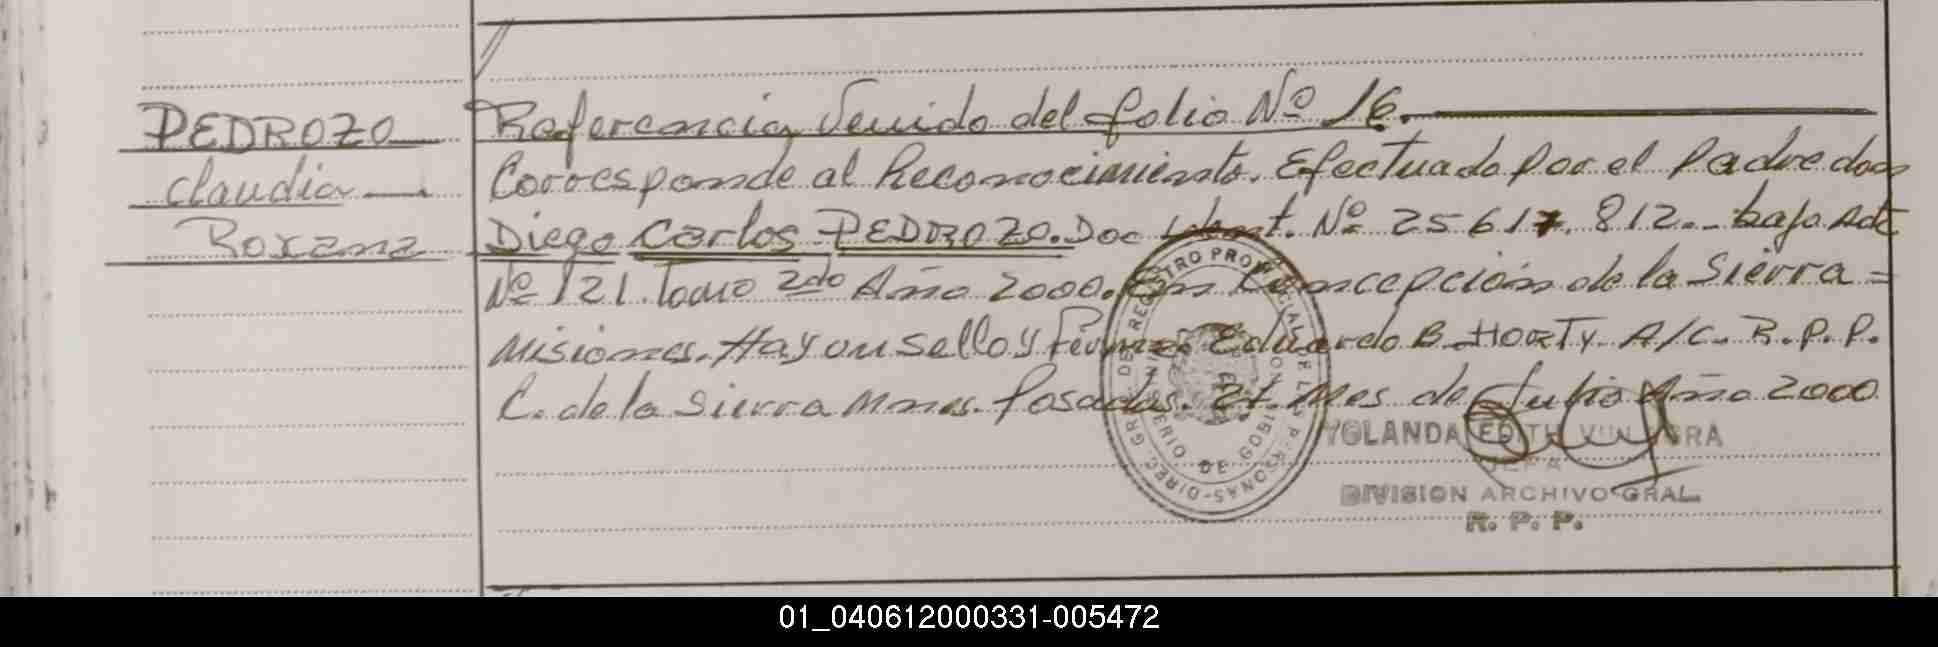 PEDROZO
Claudia
Roxana
Referencia Venido del folio Nº 16.
Corresponde al Reconocimiento. Efectuado por el Padre don
Diego Carlos PEDROZO. Doc Ident. Nº 25.617.812.- bajo Act
Nº 121. Tomo 2do Año 2000. En Concepción de la Sierra =
Misiones. Hay un sello y Firma. Eduardo B. HORTY. A/C. R.P.P.
C. de la Sierra Mnes. Posadas. 27. Mes de Julio Año 2000
YOLANDA EDITH
JEFA
DIVISION ARCHIVO GRAL.
R. P. P.
01_040612000331-005472